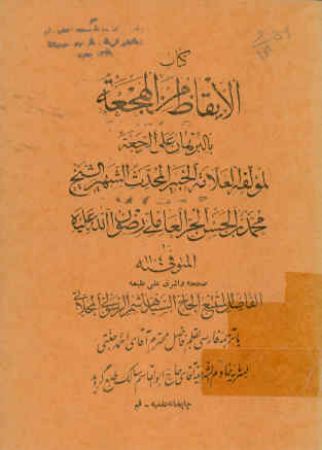 كتاب
الإيقاظ من الهجعة
بالبرهان على الرجعة
لمؤلفه العلامة الخبير المحدث الشهير الشيخ
محمد بن الحسن الحر العاملي رضوان الله عليه
المتوفى ١١٠٤
صححه واشرف على طبعه
الفاضل المتتبع الحاج السيد هاشم الرسولي المحلاتي
با ترجمه فارسی بقلم فاضل محترم آقای احمد جنتی
چاپخانه علمیه - قم